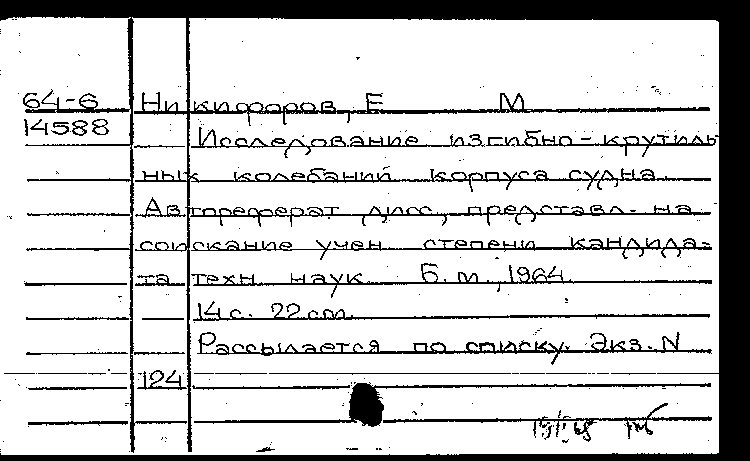 64-6 Никифоров, Е М
14588 Исследование изгибно-крутиль
ных колебаний корпуса судна.
Автореферат дисс., представл. на
соискание учен степени кандида-
та техн. наук Б.м., 1964.
14 с. 22 cm.
Рассылается по списку. Экз. N
124